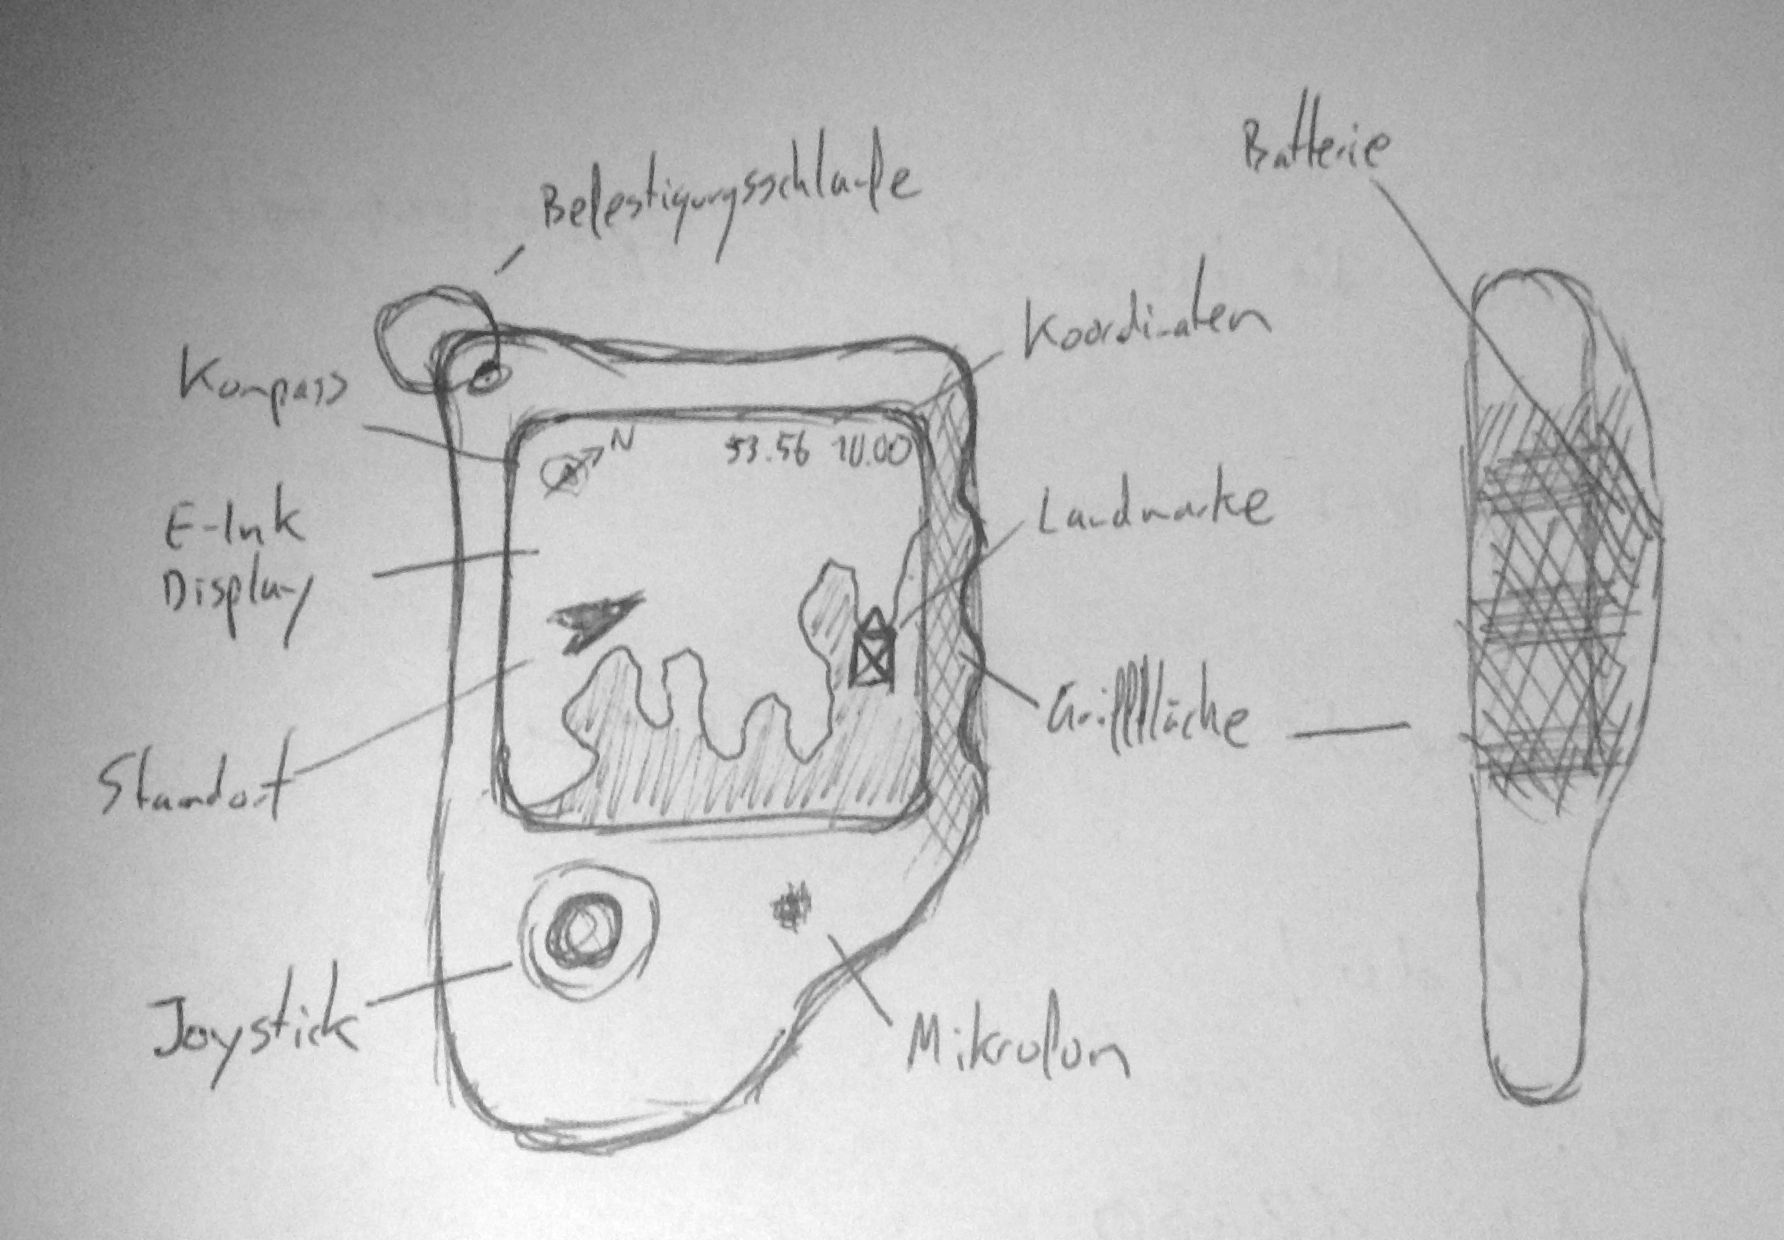 Befestigungsschlaufe
Batterie
Kompass
Koordinaten
N
53.56 10.00
E-Ink
Display
Landmarke
Standort
Grifffläche
Joystick
Mikrofon